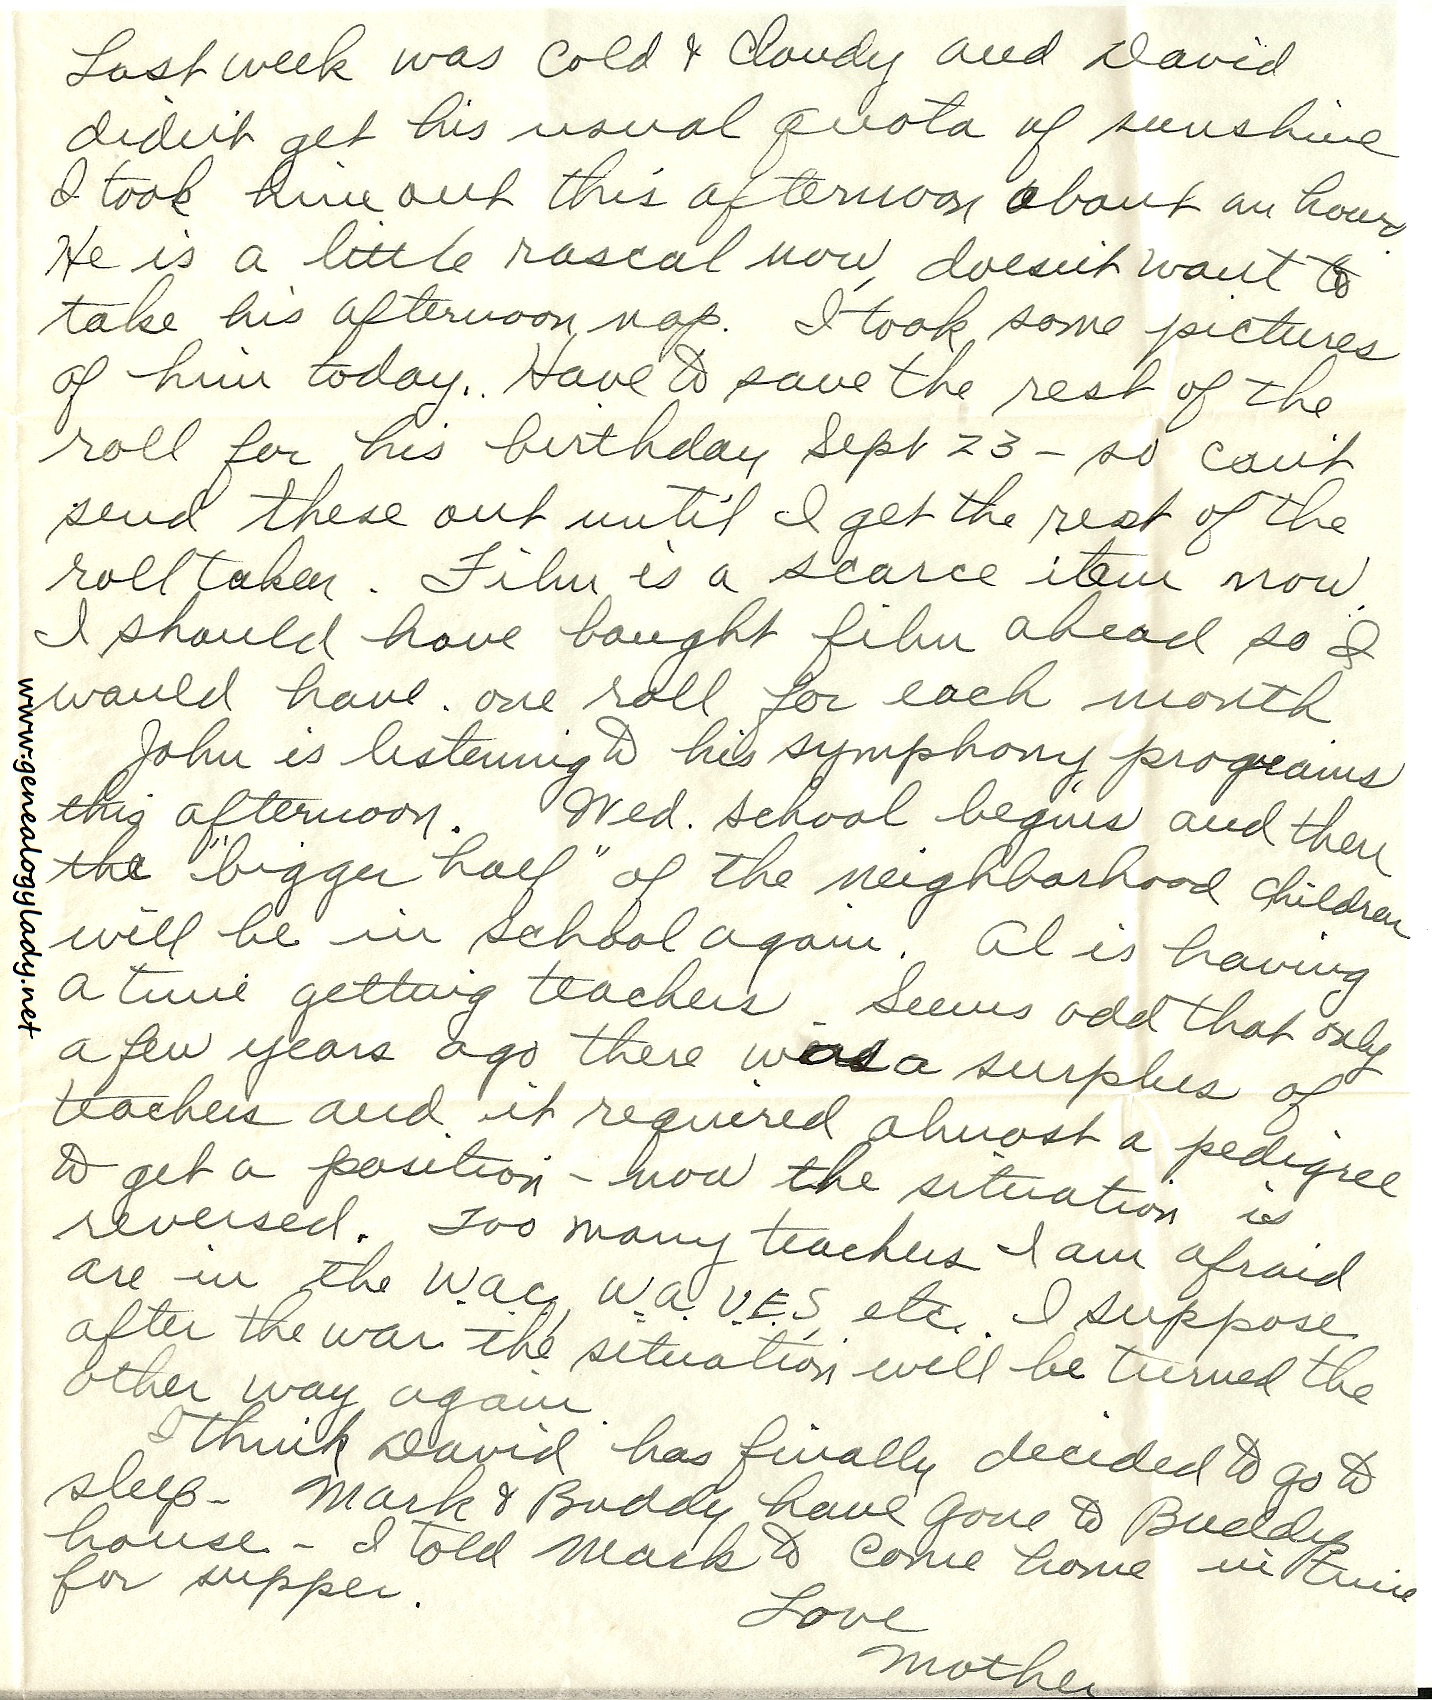 Last week was cold & cloudy and David
didn't get his usual quota of sunshine
I took him out this afternoon about an hour.
He is a little rascal now, doesn't want to
take his afternoon nap. I took some pictures
of him today. Have to save the rest of the
roll for his birthday Sept 23 - so can't
send these out until I get the rest of the
roll taken. Film is a scarce item now.
I should have bought film ahead so I
would have one roll for each month
John is listening to his symphony programs
this afternoon. Wed. school begins and then
the "bigger half" of the neighborhood children
will be in school again. Al is having
a time getting teachers. Seems odd that only
a few years ago there was a surplus of
teachers and it required almost a pedigree
to get a position - now the situation is
reversed. Too many teachers I am afraid
are in the W.a.c, W.a.V.E.S, etc. I suppose
after the war the situation will be turned the
other way again.
I think David has finally decided to go to
sleep - Mark & Buddy have gone to Buddys
house - I told Mark to come home in time
for supper.
Love
Mother
www.genealogylady.net